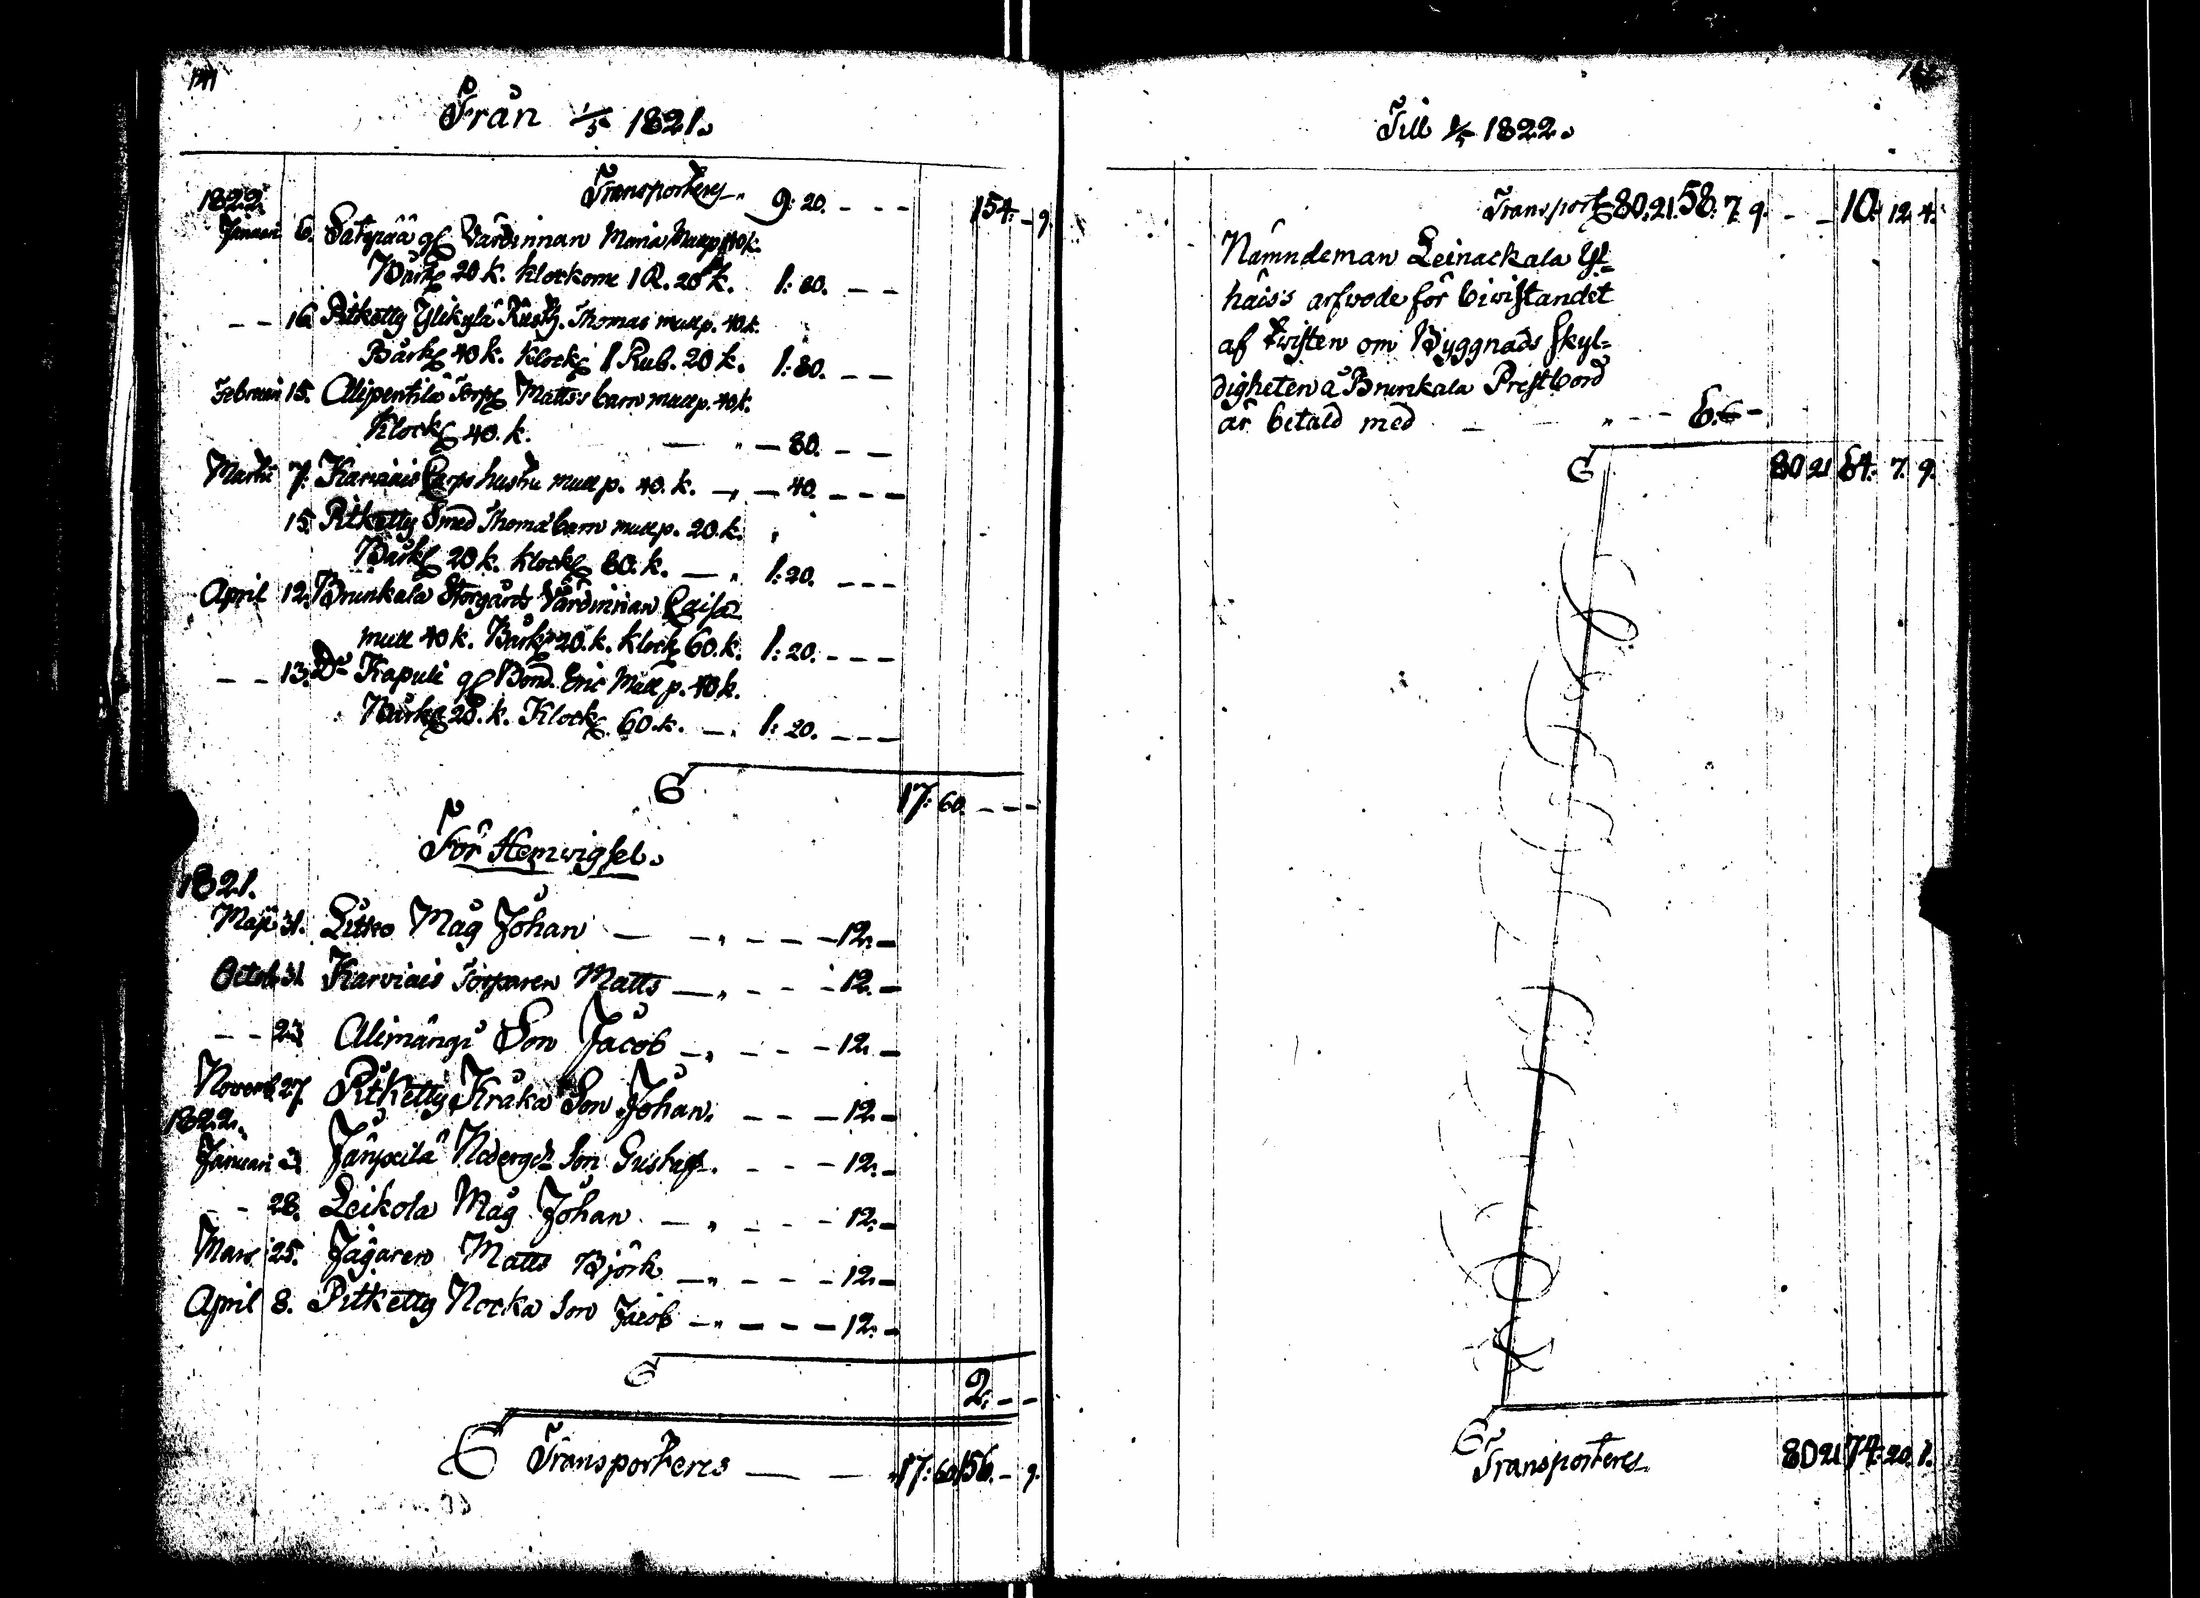 Från 1/5 1821.
Transporteras 9: 20. - - - 154. - 9
1822.
Januari 6. Satapää gl Värdinnan Maria Mull p. 40 k.
Bårkl 20 k. klockorne 1 R. 20 k. 1: 80. - -
- - 16. Pitketty Ylikylä Rusth. Thomas mull p. 40 k.
Bårkl 40 k. Klock 1 Rub. 20 k. 1: 80. - -
Februari 15. Alipentilä Torp Matts's barn mull p. 40 k.
Klock 40. k. - 80. - -
Martii 7. Karviais Torps hustru mull p. 40. k. - 40. - - -
15. Pitketty Smed Thoma barn mull p. 20. k.
Bårkl 20 k. klock 80. k. 1: 20. - - -
April 12. Brunkala Storgårds Värdinnan Caisa
mull 40 k. Bårkl 20. k. Klock 60. k. 1: 20. - - -
- - 13. Do Kapuli gl Bond. Eric Mull p. 40 k.
Bårkl 20. k. Klock 60. k. 1: 20. - - -
S 17: 60. - - -
För Hemvigsel.
1821.
Maji 31. Litko Måg Johan - - - 12. -
Octob 31. Karviais Torparen Matts - - - 12. -
- - 23 Alimängi Son Jacob - - - 12. -
Novemb 27. Pitketty Kråka Son Johan. - - - 12. -
1822.
Januari 3. Jänxilä Nedergds Son Gustaf. - - - 12. -
- - 28. Leikola Måg Johan - - - 12. -
Mars 25. Jägaren Matts Björk - - - 12. -
April 8. Pitketty Nocka Son Jacob - - - 12. -
S 2. - -
S Transporteres 17: 60 156. - 9.
Till 1/5 1822.
Transport 80. 21. 58. 7. 9. - - 10. 12. 4.
Nämndeman Leinackala Yl-
häis's arfvode för biwistandet
af twisten om Byggnads skyl-
digheten å Brunkala Prestbord
är betald med - - - 6. 6 -
S 80 21 64. 7. 9.
S Transporteres 80 21 74. 20. 1.